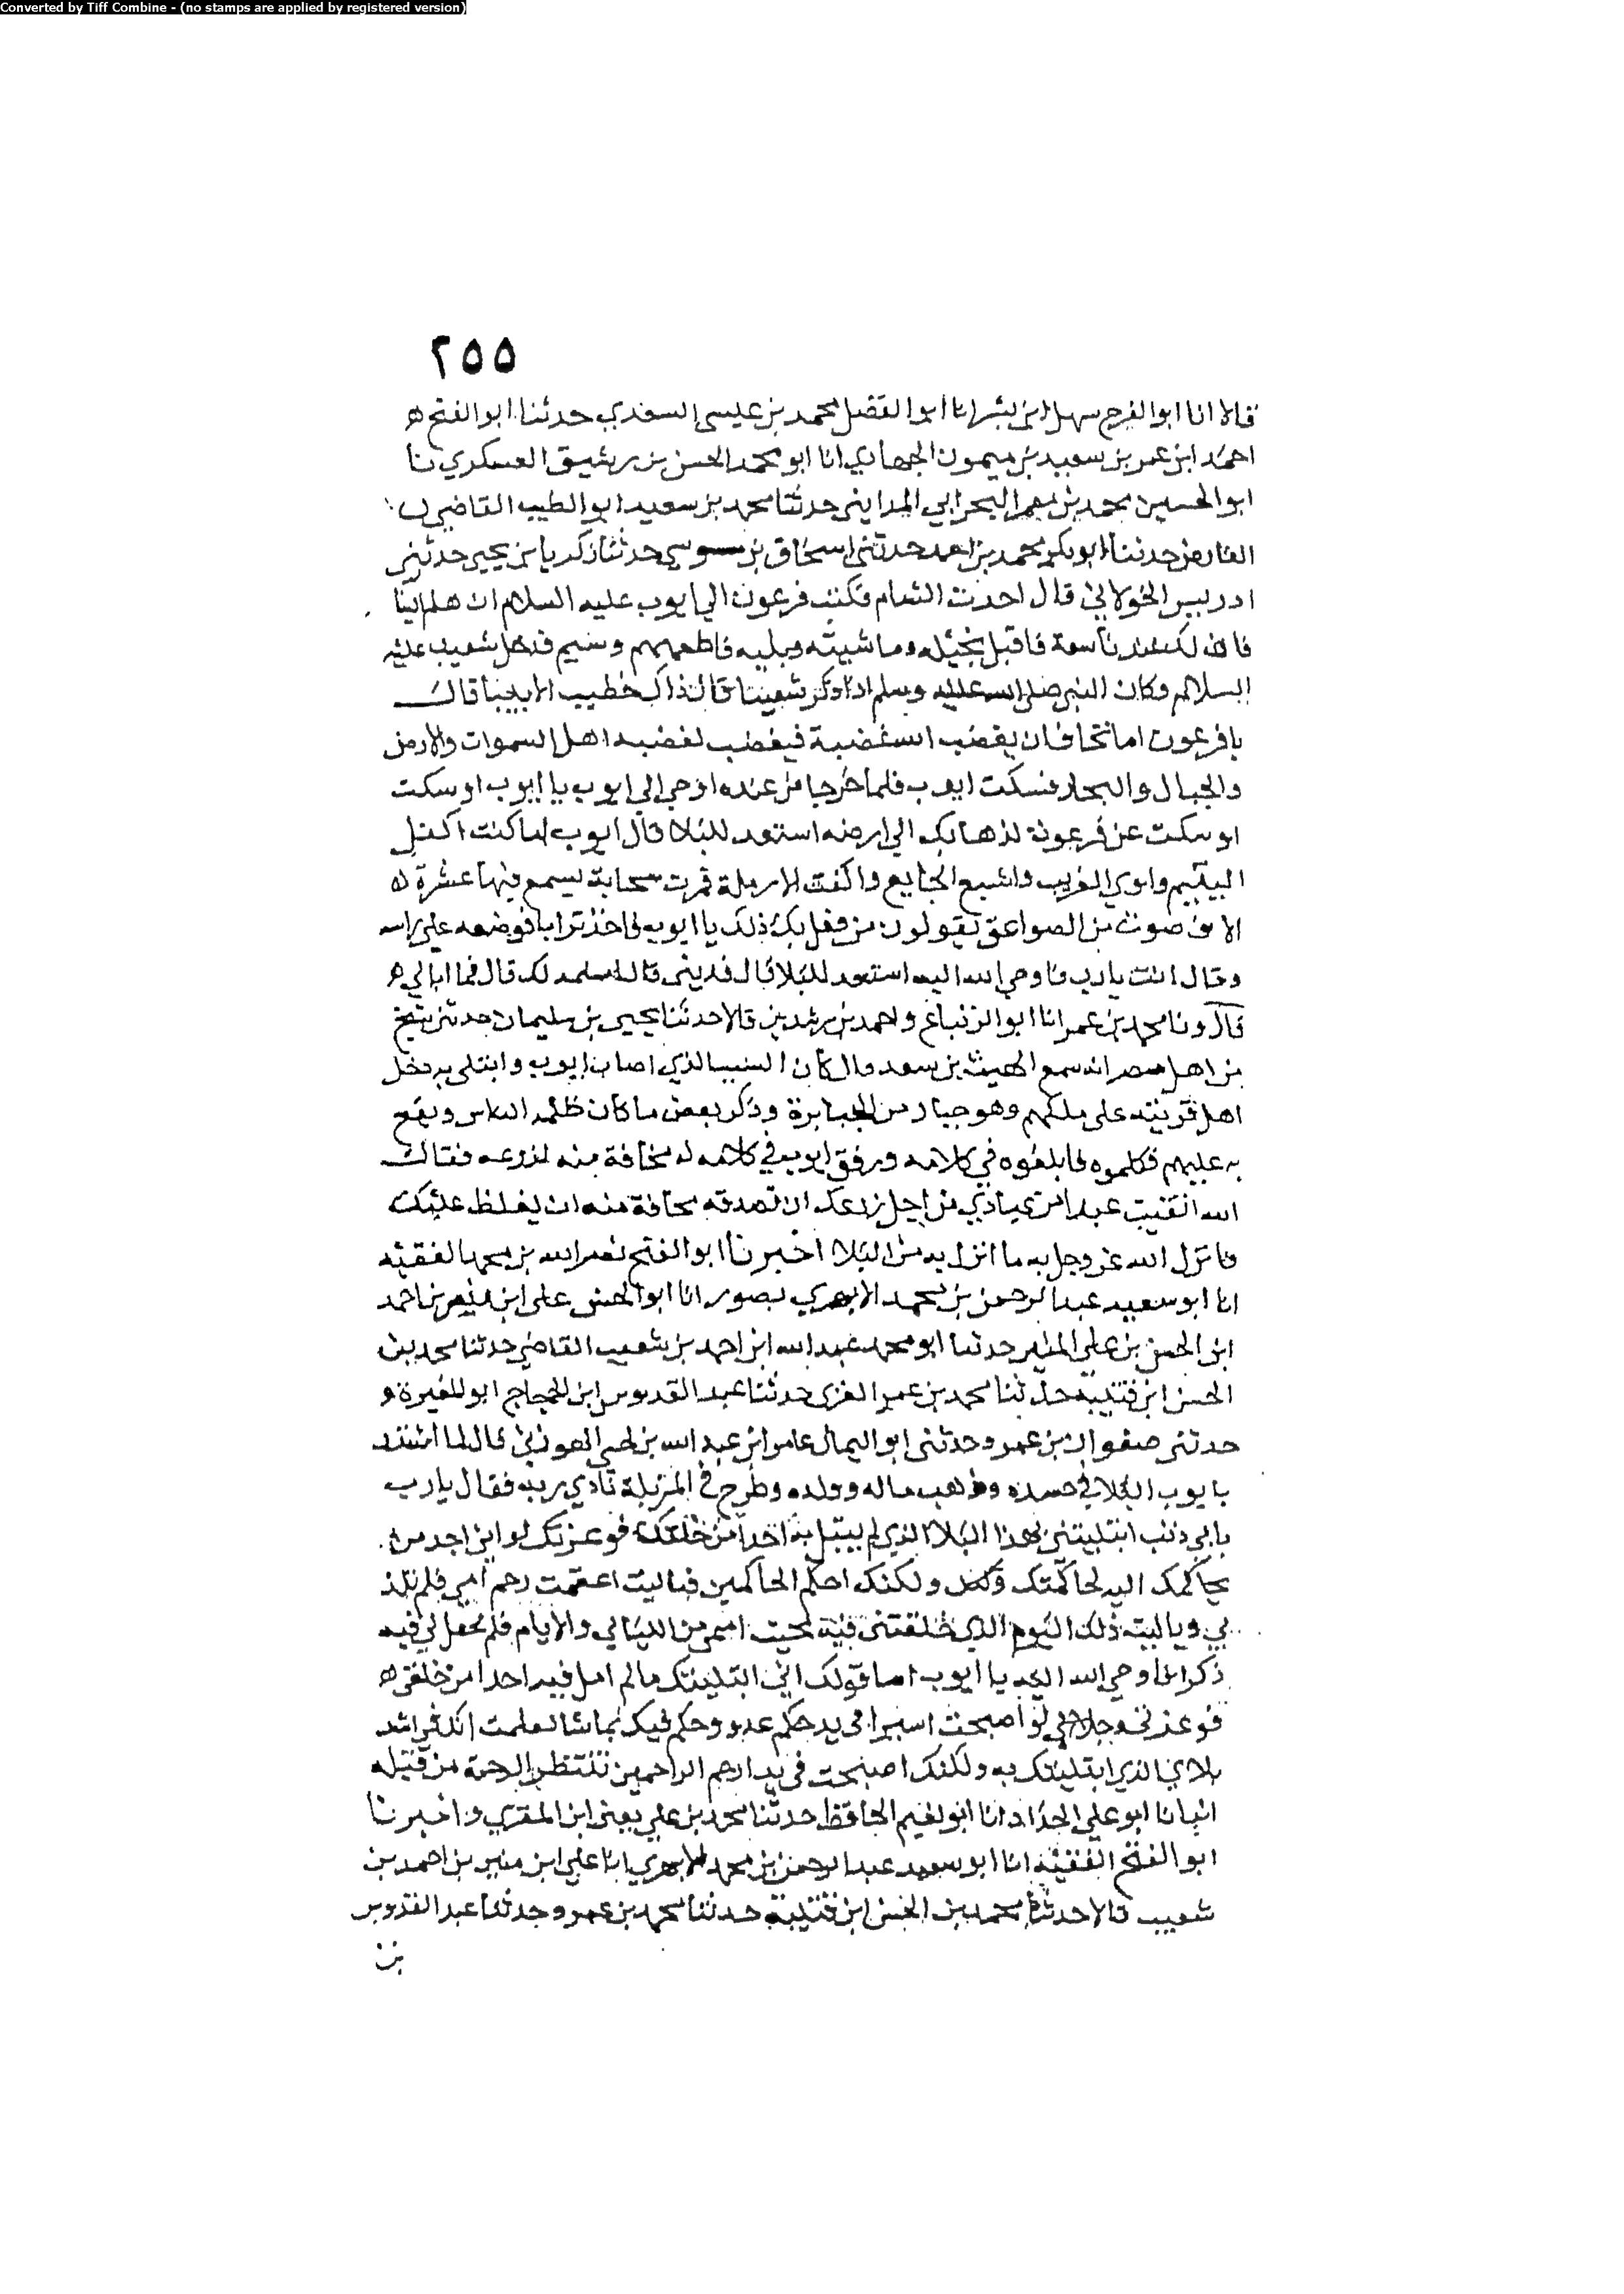 Converted by Tiff Combine - (no stamps are applied by registered version)
٢٥٥
قالا انا ابو الفرج سهل ابن بشر انا ابو الفضل محمد بن عيسى السعدي حدثنا ابو الفتح ه
احمد ابن عمر بن سعيد بن ميمون الجهازي انا ابو محمد الحسن بن رشيق العسكري نا
ابو الحسين محمد بن معمر البحراني المدايني حدثنا محمد بن سعيد ابو الطيب القاضي
حدثنا ابو بكر محمد بن احمد حدثني اسحاق بن موسي حدثنا زكريا بن يحيي حدثني
ادريس الخولاني قال اجدت الشام فكتب فرعون الي ايوب عليه السلام ان هلم الينا
فان لك عندنا سعة فاقبل بخيله وماشيته وبنيه فاقطعهم وسيم فدخل شعيب عليه
السلام وكان النبي صلى الله عليه وسلم اذا ذكر شعيبا قال ذاك خطيب الانبيا قال
يا فرعون اما تخاف ان يغضب الله غضبة فيغضب لغضبه اهل السموات والارض
والجبال والبحار فسكت ايوب فلما خرجا من عنده اوحي الي ايوب يا ايوب اوسكت
اوسكت عن فرعون لذهابك الي ارضه استعد للبلا قال ايوب اما كنت اكفل
اليتيم واوي الغريب واشبع الجايع واكفت الارملة فمرت سحابة يسمع فيها عشرة اه
الاف صوت من الصواعق يقولون من فعل بك ذلك يا ايوب فاخذ ترابا فوضعه علي راسه
وقال انت يارب فاوحي الله اليه استعد للبلا قال فديني قال اسلمه لك قال فما ابالي ه
قال ونا محمد بن عمر انا ابو الزنباع واحمد بن رشدين قالا حدثنا يحيى بن سليمان حدثني شيخ
من اهل مصر انه سمع الليث بن سعد قال كان السبب الذي اصاب ايوب وابتلى به دخل
اهل قريته على ملكهم وهو جبار من الجبابرة وذكر بعض ما كان ظلمه الناس
به عليهم فكلموه فابلغوه في كلامه ورفق ايوب في كلامه له مخافة منه لزرعه فقال
الله اتقيت عبدا من عبادي من اجل زرعك ان تصدقه مخافة منه ان يغلظ عليك
فانزل الله عز وجل به ما انزل به من البلا اخبرنا ابو الفتح نصر الله بن محمد الفقيه
انا ابو سعيد عبد الرحمن بن محمد الابهري بصور انا ابو الحسن على ابن منير بن احمد
ابن الحسن بن علي المنير حدثنا ابو محمد عبد الله ابن احمد بن شعيب القاضي حدثنا محمد بن
الحسن ابن قتيبة حدثنا محمد بن عمرو الغزى حدثنا عبد القدوس ابن الحجاج ابو المغيرة و
حدثني صفوان بن عمرو حدثني ابو اليمان عامر ابن عبد الله بن لحي الهوزني قال لما اشتد
بايوب البلا في جسده وذهب ماله وولده وطرح في المزبلة نادي ربه فقال يارب
باي ذنب ابتليتني بهذا البلا الذي لم يبتل به احدا من خلقك فوعزتك لو اني اجد من
يحاكمك اليه لحاكمتك ولكنك احكم الحاكمين فياليت اعتقمت رحم امي فلم تلد
بي وياليت ذلك اليوم الذي خلقتني فيه محيت اسمي من الليالي والايام فلم تجعل لي فيه
ذكرا فاوحي الله اليه يا ايوب اما قولك اني ابتليتك مالم ابتل فيه احدا من خلقي ه
فوعزتي وجلالي لو اصبحت اسيرا في يد حكم عدو وحكم فيك بما شا لعلمت انك في اشد
بلائي الذي ابتليتك به ولكنك اصبحت في يد ارحم الراحمين تنتظر الرحمة من قبله
انبانا ابو علي الحداد انا ابو نعيم الحافظ حدثنا محمد بن علي يعني ابن المقري واخبرنا
ابو الفتح الفقيه انا ابو سعيد عبد الرحمن بن محمد الابهري انا علي ابن منير بن احمد بن
شعيب قالا حدثنا محمد بن الحسن ابن قتيبة حدثنا محمد بن عمرو حدثنا عبد القدوس
بن